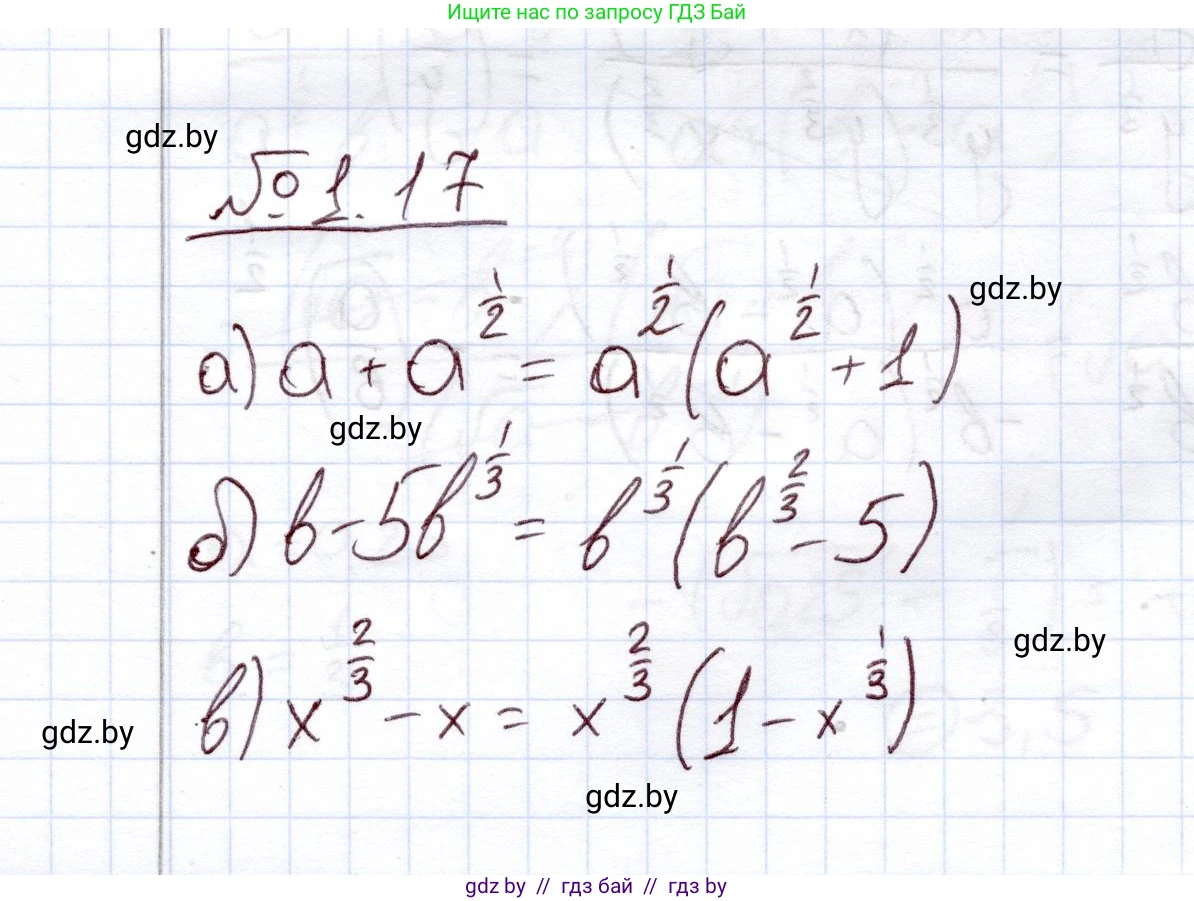 Ищите нас по запросу ГДЗ Бай
gdz.by
№ 1.17
gdz.by
а) a + a^{\frac{1}{2}} = a^{\frac{1}{2}} (a^{\frac{1}{2}} + 1)
gdz.by
б) b - 5b^{\frac{1}{3}} = b^{\frac{1}{3}} (b^{\frac{2}{3}} - 5)
gdz.by
в) x^{\frac{2}{3}} - x = x^{\frac{2}{3}} (1 - x^{\frac{1}{3}})
gdz.by
gdz.by
gdz by // гдз бай // гдз by